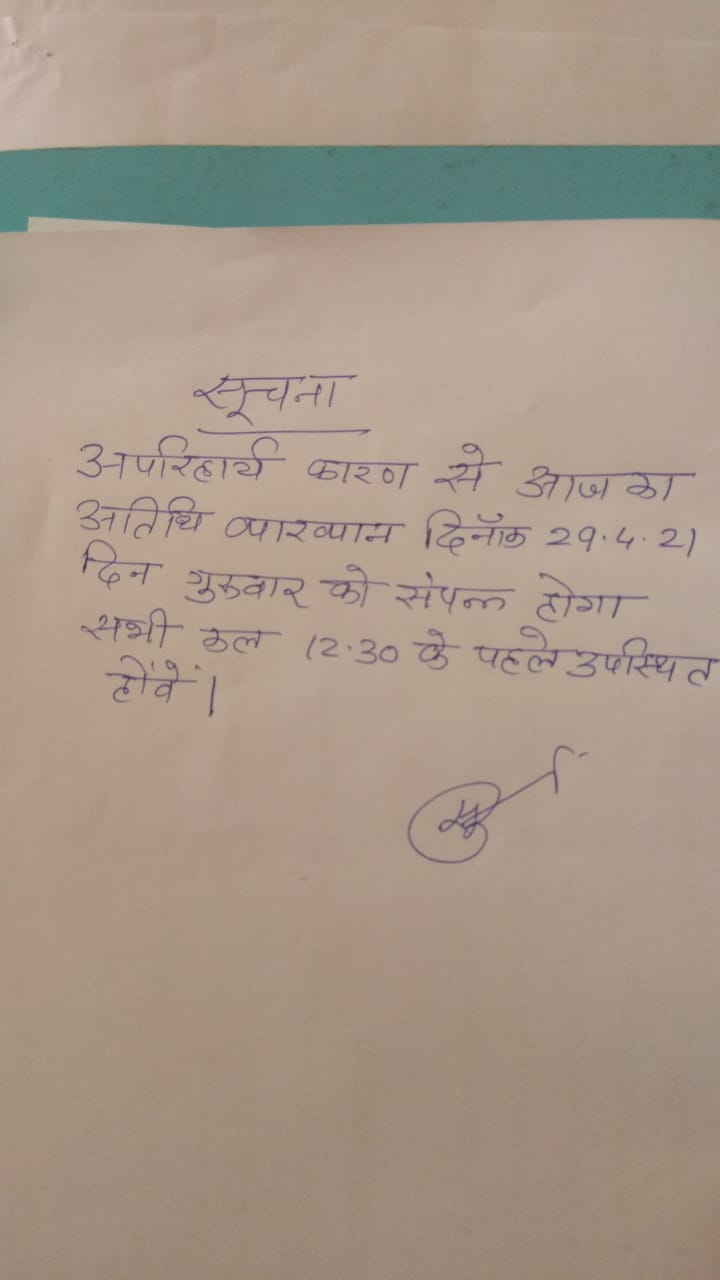 सूचना
अपरिहार्य कारण से आज का
अतिथि व्याख्यान दिनॉक 29.4.21
दिन गुरुवार को संपन्न होगा
सभी कल 12.30 के पहले उपस्थित
होंवें।